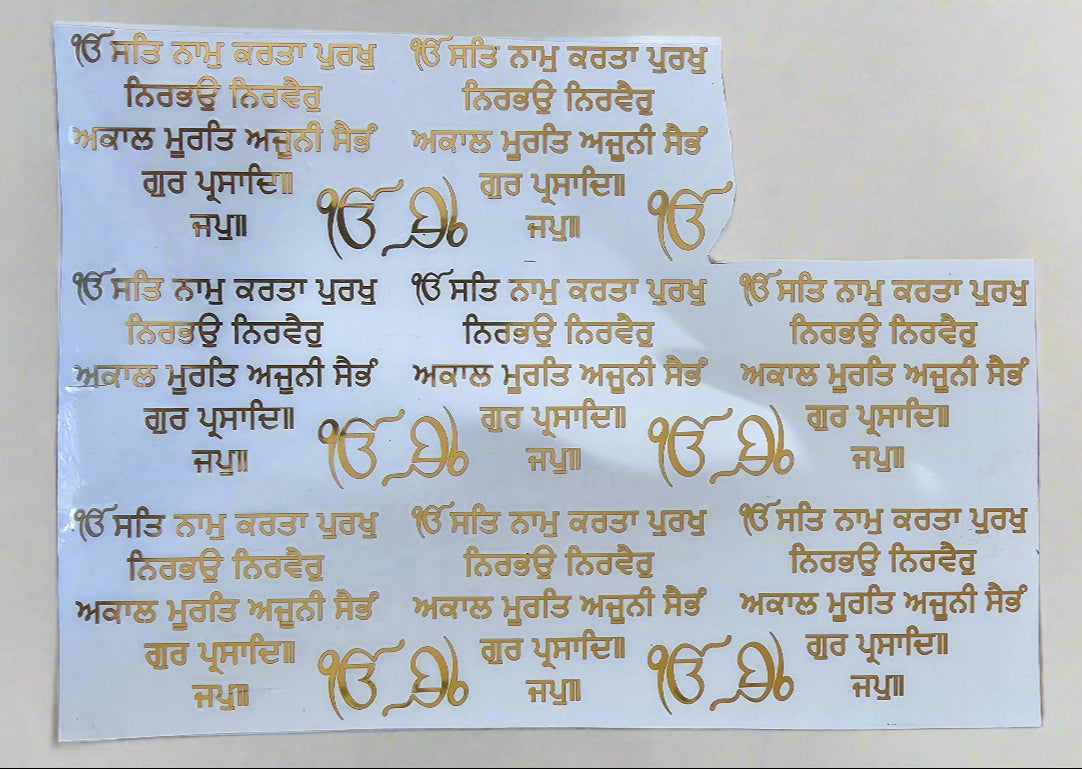 ੴ ਸਤਿ ਨਾਮੁ ਕਰਤਾ ਪੁਰਖੁ
ਨਿਰਭਉ ਨਿਰਵੈਰੁ
ਅਕਾਲ ਮੂਰਤਿ ਅਜੂਨੀ ਸੈਭੰ
ਗੁਰ ਪ੍ਰਸਾਦਿ॥
ਜਪੁ॥
ੴ ੴ
ੴ ਸਤਿ ਨਾਮੁ ਕਰਤਾ ਪੁਰਖੁ
ਨਿਰਭਉ ਨਿਰਵੈਰੁ
ਅਕਾਲ ਮੂਰਤਿ ਅਜੂਨੀ ਸੈਭੰ
ਗੁਰ ਪ੍ਰਸਾਦਿ॥
ਜਪੁ॥
ੴ
ੴ ਸਤਿ ਨਾਮੁ ਕਰਤਾ ਪੁਰਖੁ
ਨਿਰਭਉ ਨਿਰਵੈਰੁ
ਅਕਾਲ ਮੂਰਤਿ ਅਜੂਨੀ ਸੈਭੰ
ਗੁਰ ਪ੍ਰਸਾਦਿ॥
ਜਪੁ॥
ੴ ੴ
ੴ ਸਤਿ ਨਾਮੁ ਕਰਤਾ ਪੁਰਖੁ
ਨਿਰਭਉ ਨਿਰਵੈਰੁ
ਅਕਾਲ ਮੂਰਤਿ ਅਜੂਨੀ ਸੈਭੰ
ਗੁਰ ਪ੍ਰਸਾਦਿ॥
ਜਪੁ॥
ੴ ੴ
ੴ ਸਤਿ ਨਾਮੁ ਕਰਤਾ ਪੁਰਖੁ
ਨਿਰਭਉ ਨਿਰਵੈਰੁ
ਅਕਾਲ ਮੂਰਤਿ ਅਜੂਨੀ ਸੈਭੰ
ਗੁਰ ਪ੍ਰਸਾਦਿ॥
ਜਪੁ॥
ੴ ਸਤਿ ਨਾਮੁ ਕਰਤਾ ਪੁਰਖੁ
ਨਿਰਭਉ ਨਿਰਵੈਰੁ
ਅਕਾਲ ਮੂਰਤਿ ਅਜੂਨੀ ਸੈਭੰ
ਗੁਰ ਪ੍ਰਸਾਦਿ॥
ਜਪੁ॥
ੴ ੴ
ੴ ਸਤਿ ਨਾਮੁ ਕਰਤਾ ਪੁਰਖੁ
ਨਿਰਭਉ ਨਿਰਵੈਰੁ
ਅਕਾਲ ਮੂਰਤਿ ਅਜੂਨੀ ਸੈਭੰ
ਗੁਰ ਪ੍ਰਸਾਦਿ॥
ਜਪੁ॥
ੴ ੴ
ੴ ਸਤਿ ਨਾਮੁ ਕਰਤਾ ਪੁਰਖੁ
ਨਿਰਭਉ ਨਿਰਵੈਰੁ
ਅਕਾਲ ਮੂਰਤਿ ਅਜੂਨੀ ਸੈਭੰ
ਗੁਰ ਪ੍ਰਸਾਦਿ॥
ਜਪੁ॥